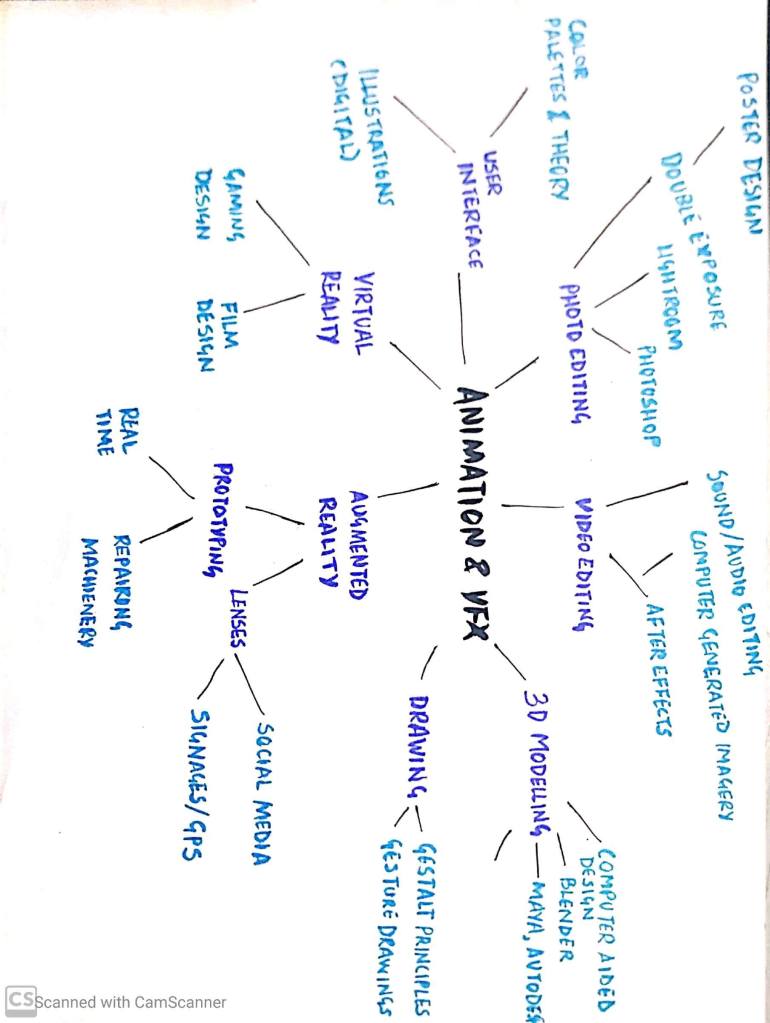 POSTER DESIGN
DOUBLE EXPOSURE
LIGHTROOM
PHOTOSHOP
PHOTO EDITING
COLOR
PALETTES & THEORY
ILLUSTRATIONS
(DIGITAL)
USER
INTERFACE
GAMING
DESIGN
FILM
DESIGN
VIRTUAL
REALITY
ANIMATION & VFX
SOUND/AUDIO EDITING
COMPUTER GENERATED IMAGERY
AFTER EFFECTS
VIDEO EDITING
3D MODELLING
COMPUTER AIDED
DESIGN
BLENDER
MAYA, AUTODES
DRAWING
GESTALT PRINCIPLES
GESTURE DRAWINGS
AUGMENTED
REALITY
PROTOTYPING
REAL
TIME
REPAIRING
MACHIENERY
LENSES
SOCIAL MEDIA
SIGNAGES/GPS
CS Scanned with CamScanner